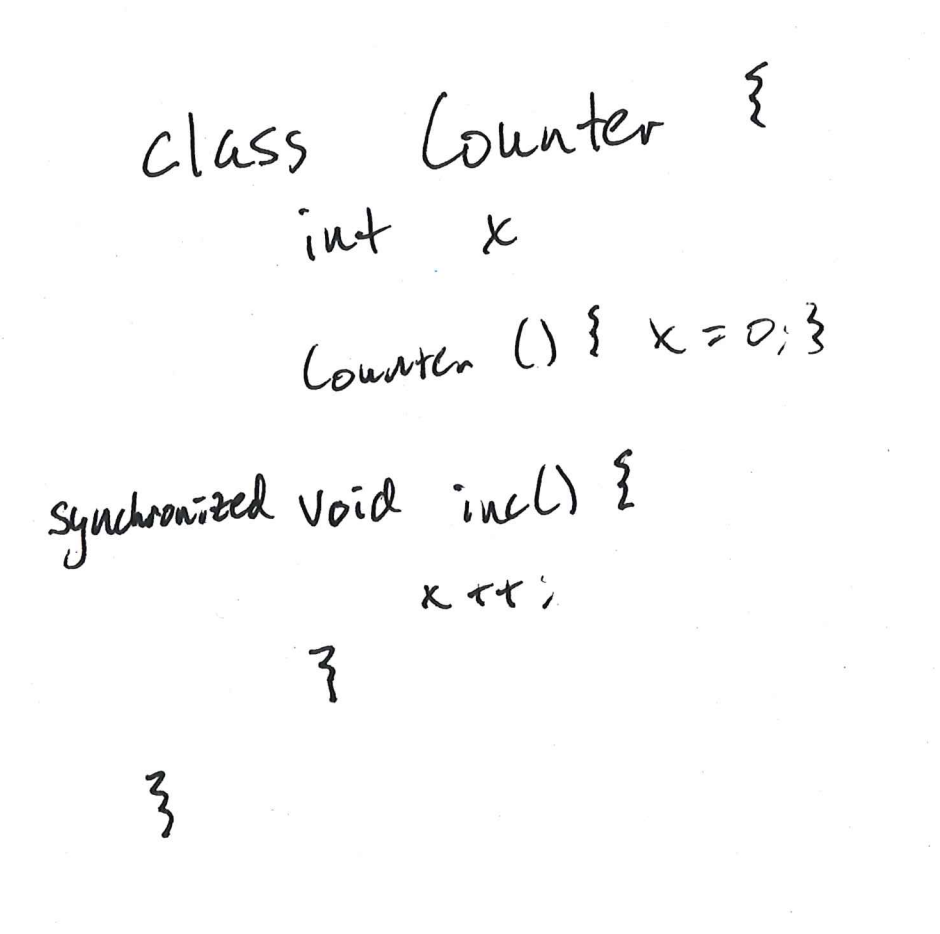 class Counter {
int x
Counter () { x = 0; }
synchronized void inc() {
x ++;
}
}